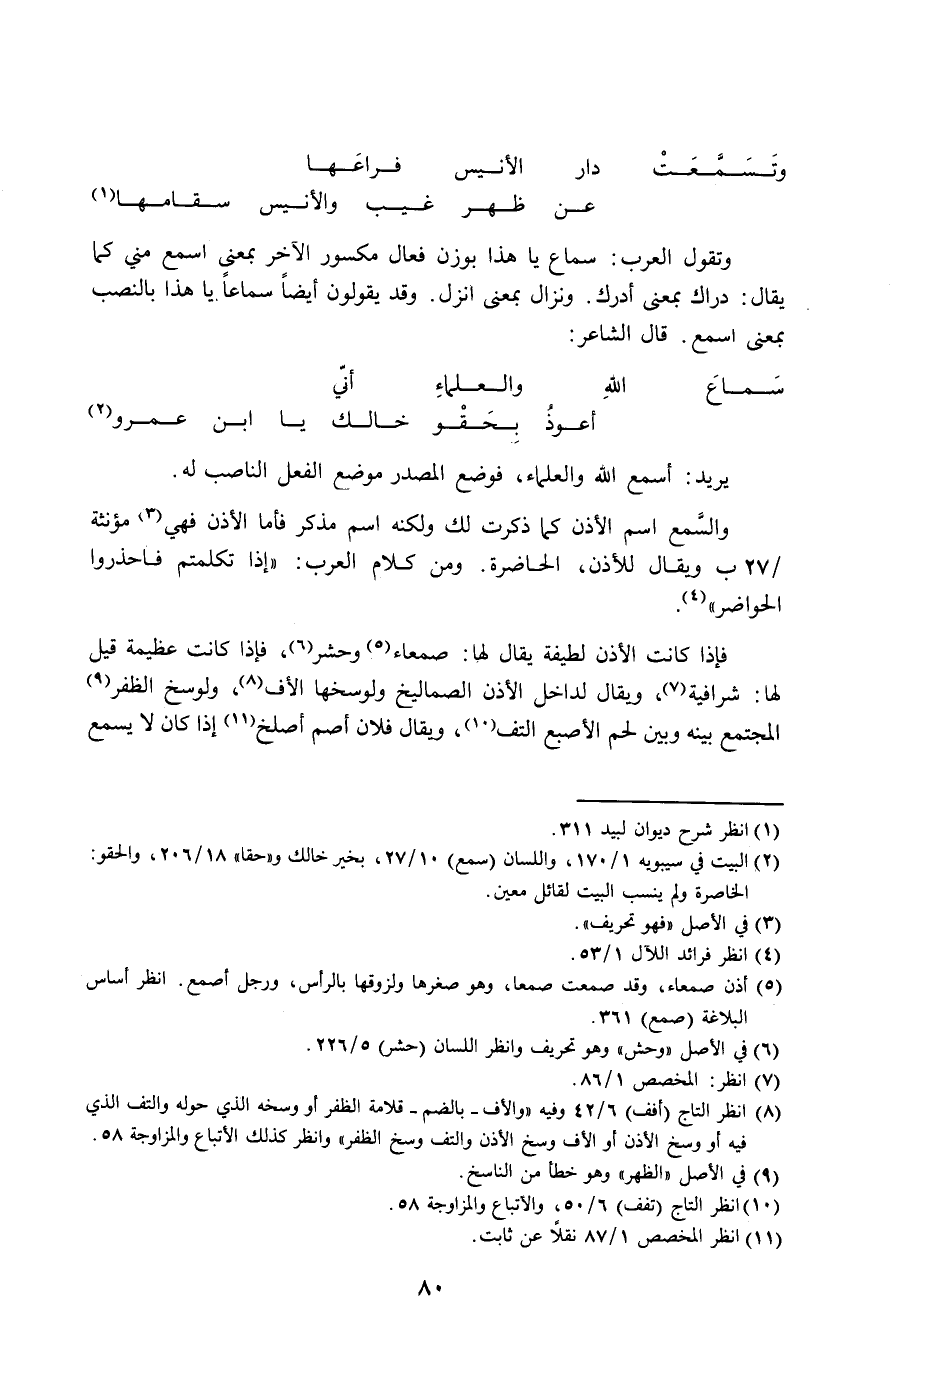 وتَسَمَّعَتْ دار الأنيس فراعَها
عن ظهر غيب والأنيس سقامها(١)
وتقول العرب: سماع يا هذا بوزن فعال مكسور الآخر بمعنى اسمع مني كما
يقال: دراك بمعنى أدرك. ونزال بمعنى انزل. وقد يقولون أيضاً سماعاً يا هذا بالنصب
بمعنى اسمع. قال الشاعر:
سَماعَ اللهِ والعلماءِ أنّي
أعوذُ بِحَقْوِ خالك يا ابن عمرو(٢)
يريد: أسمع الله والعلماء، فوضع المصدر موضع الفعل الناصب له.
والسَّمع اسم الأذن كما ذكرت لك ولكنه اسم مذكر فأما الأذن فهي(٣) مؤنثة
/٢٧ ب ويقال للأذن، الحاضرة. ومن كلام العرب: «إذا تكلمتم فاحذروا
الحواضر»(٤).
فإذا كانت الأذن لطيفة يقال لها: صمعاء(٥) وحشر(٦)، فإذا كانت عظيمة قيل
لها: شرافية(٧)، ويقال لداخل الأذن الصماليخ ولوسخها الأف(٨)، ولوسخ الظفر(٩)
المجتمع بينه وبين لحم الأصبع التف(١٠)، ويقال فلان أصم أصلخ(١١) إذا كان لا يسمع
(١) انظر شرح ديوان لبيد ٣١١.
(٢) البيت في سيبويه ١٧٠/١، واللسان (سمع) ٢٧/١٠، بخير خالك و«حقا» ٢٠٦/١٨، والحقو:
الخاصرة ولم ينسب البيت لقائل معين.
(٣) في الأصل «فهو تحريف».
(٤) انظر فرائد اللآل ٥٣/١.
(٥) أذن صمعاء، وقد صمعت صمعا، وهو صغرها ولزوقها بالرأس، ورجل أصمع. انظر أساس
البلاغة (صمع) ٣٦١.
(٦) في الأصل «وحش» وهو تحريف وانظر اللسان (حشر) ٢٢٦/٥.
(٧) انظر: المخصص ٨٦/١.
(٨) انظر التاج (أفف) ٤٢/٦ وفيه «والأف ـ بالضم ـ قلامة الظفر أو وسخه الذي حوله والتف الذي
فيه أو وسخ الأذن أو الأف وسخ الأذن والتف وسخ الظفر» وانظر كذلك الأتباع والمزاوجة ٥٨.
(٩) في الأصل «الظهر» وهو خطأ من الناسخ.
(١٠) انظر التاج (تفف) ٥٠/٦، والاتباع والمزاوجة ٥٨.
(١١) انظر المخصص ٨٧/١ نقلاً عن ثابت.
٨٠